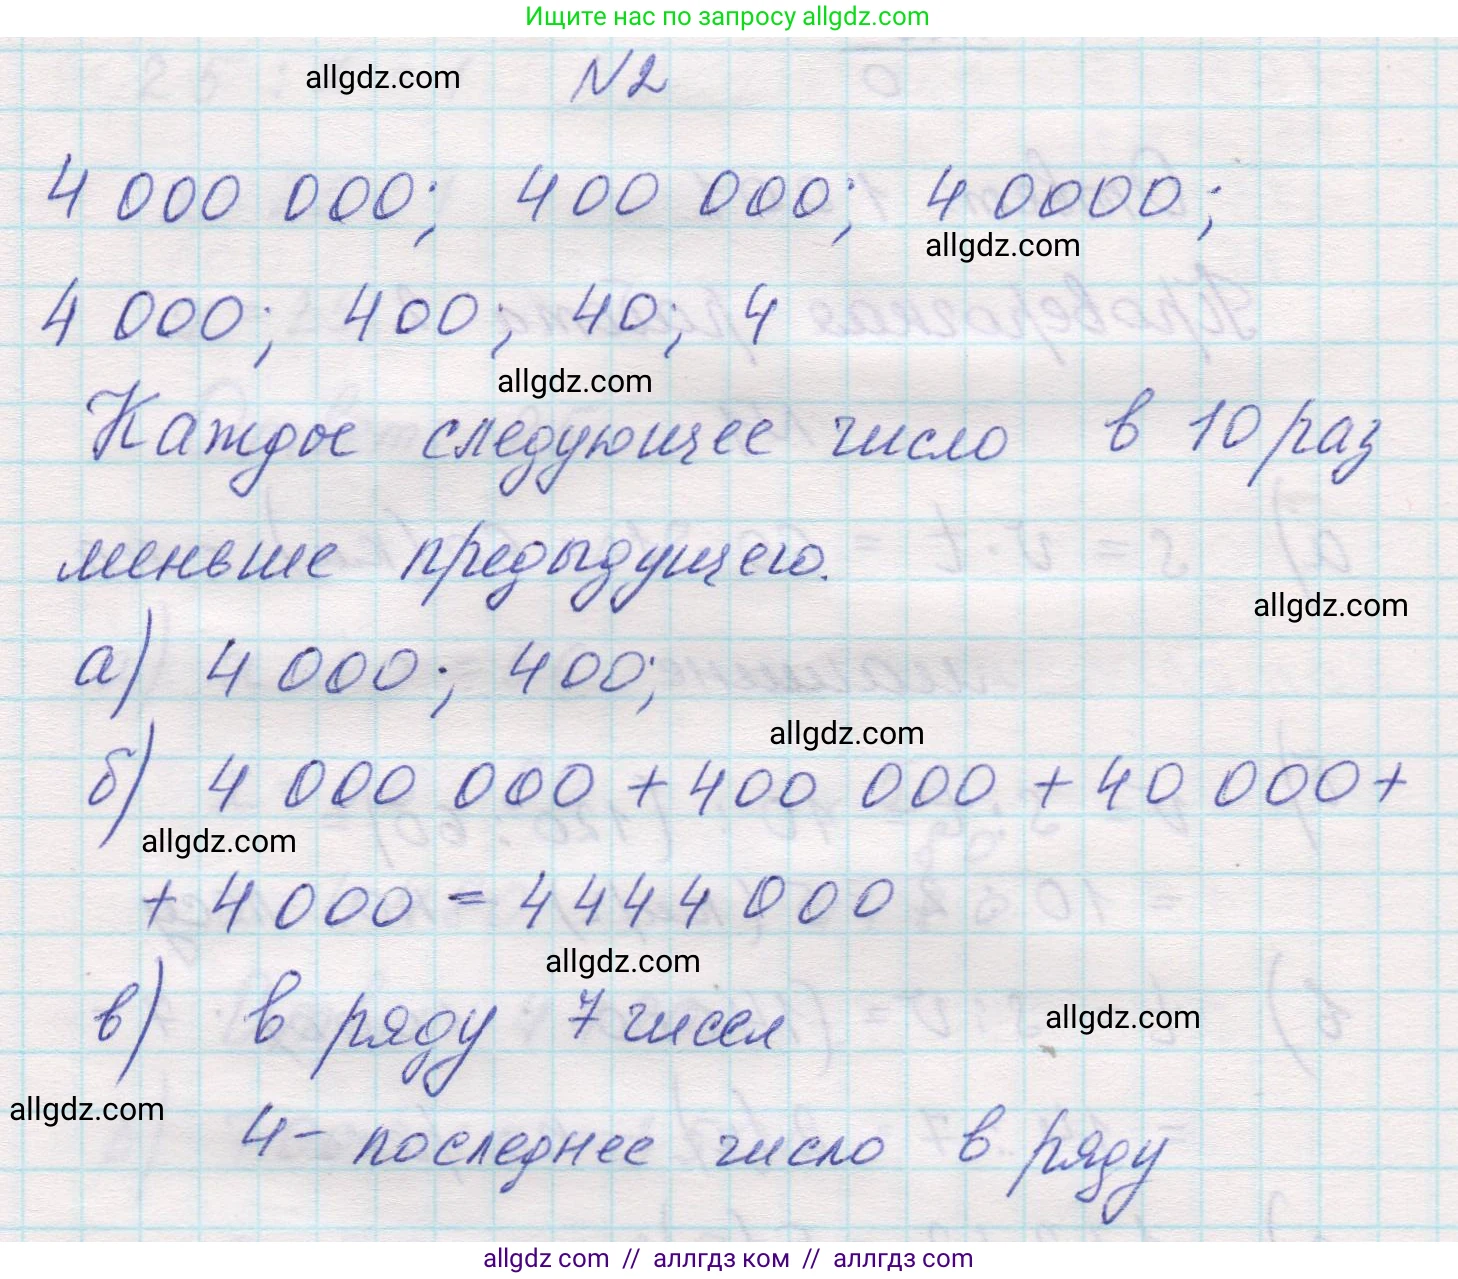 Ищите нас по запросу allgdz.com
allgdz.com
N2
4 000 000; 400 000; 40000;
allgdz.com
4 000; 400; 40; 4
allgdz.com
Каждое следующее число в 10 раз
меньше предыдущего.
allgdz.com
а) 4 000; 400;
allgdz.com
б) 4 000 000 + 400 000 + 40 000 +
allgdz.com
+ 4 000 = 4444 000
allgdz.com
в) в ряду 7 чисел
allgdz.com
allgdz.com
4 - последнее число в ряду
allgdz.com // аллгдз ком // аллгдз.com